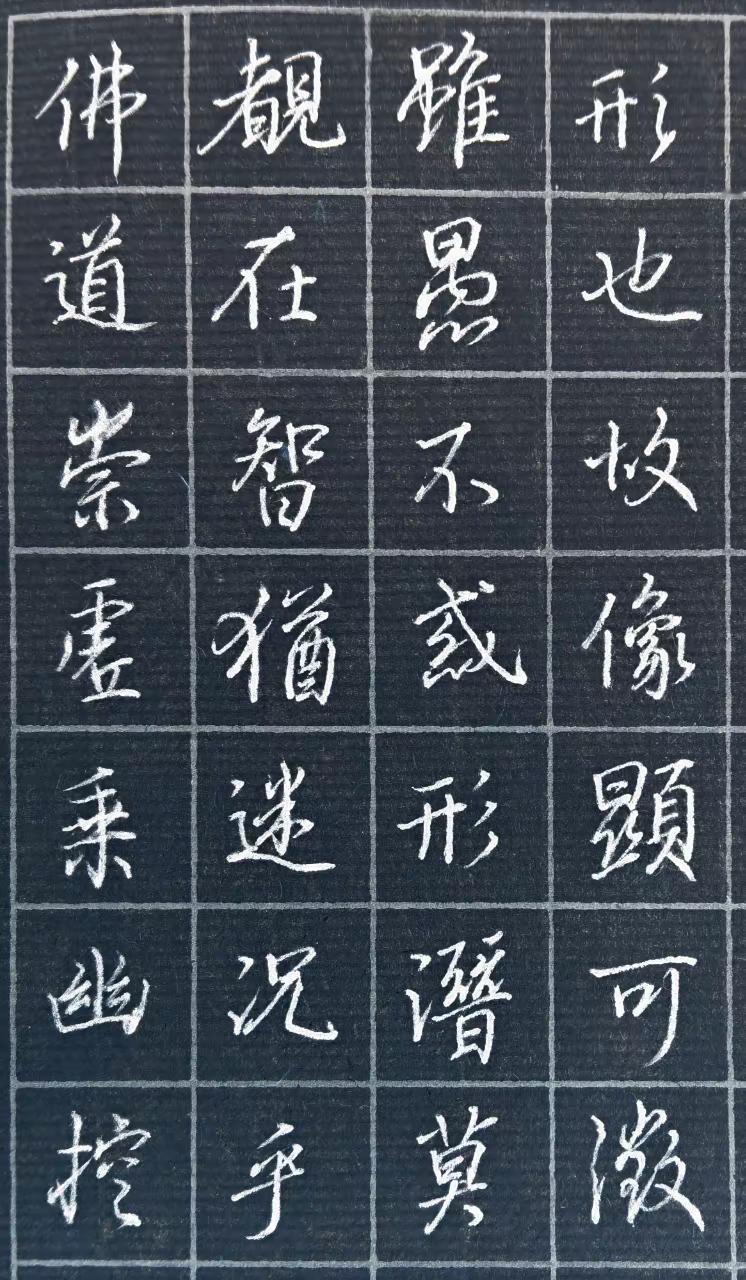 形也故像顯可徵
雖愚不惑形潛莫
覩在智猶迷況乎
佛道崇虛乘幽控